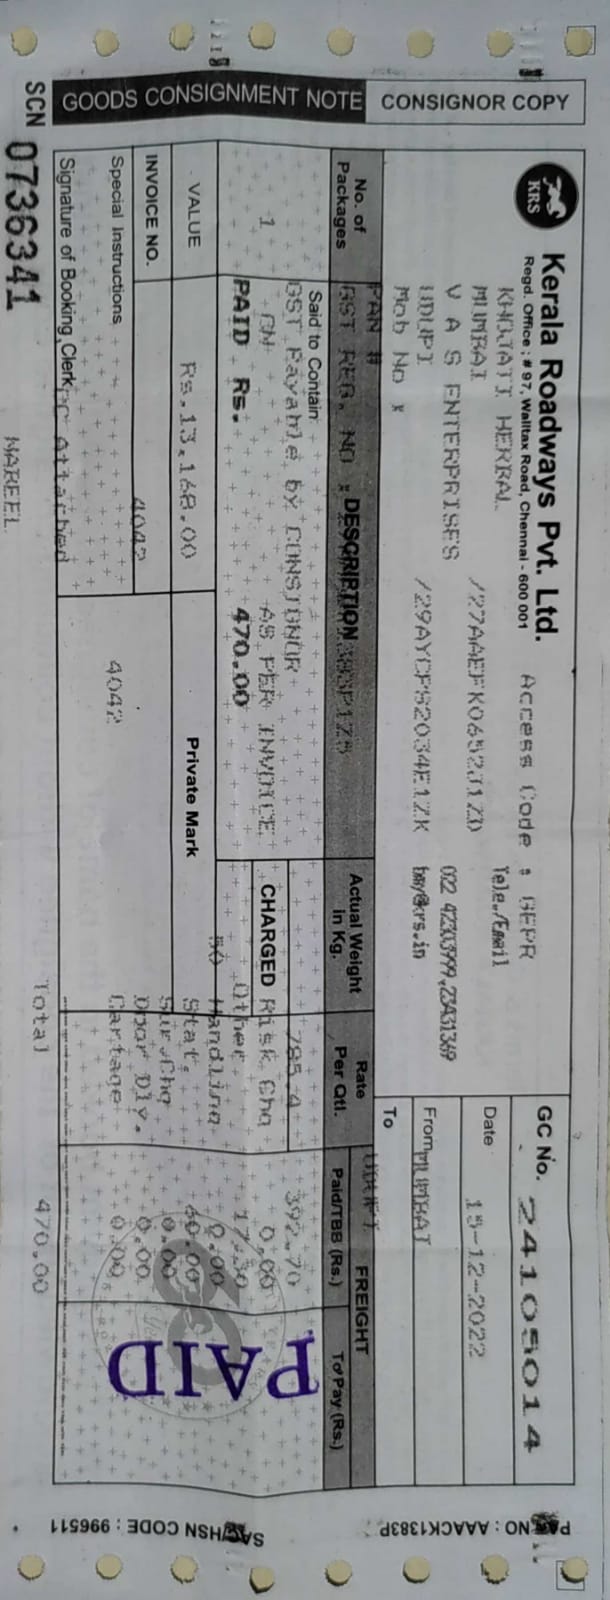 GOODS CONSIGNMENT NOTE CONSIGNOR COPY
KRS
Kerala Roadways Pvt. Ltd.
Regd. Office : # 97, Walltax Road, Chennai - 600 001
Access Code : GEPR
GC No. 24105014
KHOJATI HERBAL
Tele./Email
Date 15-12-2022
MUMBAI /27AAEFK0652J1ZD
V A S ENTERPRISES 022 42303999,23431369
From MUMBAI
UDUPI /29AYCPS2034E1ZK
To UDUPI
Mob No :
PAN #
GST REG. NO :
No. of Packages
DESCRIPTION
Actual Weight in Kg.
Rate Per Qtl.
FREIGHT
Paid/TBB (Rs.)
To Pay (Rs.)
Said to Contain
GST Payable by CONSIGNOR
785.4 392.70
1 CN AS PER INVOICE
CHARGED Risk Chg 0.00
PAID Rs. 470.00
Other 17.30
50 Handling 0.00
VALUE Rs.13,168.00
Private Mark
Stat. 60.00
Sur.Chg 0.00
INVOICE NO. 4042
Door Dly. 0.00
Special Instructions
4042
Cartage 0.00
PAID
Signature of Booking Clerk
Attached
SCN 0736341
NAREEL
Total 470.00
PAN NO : AAACK1383P
SAC/HSN CODE : 996511